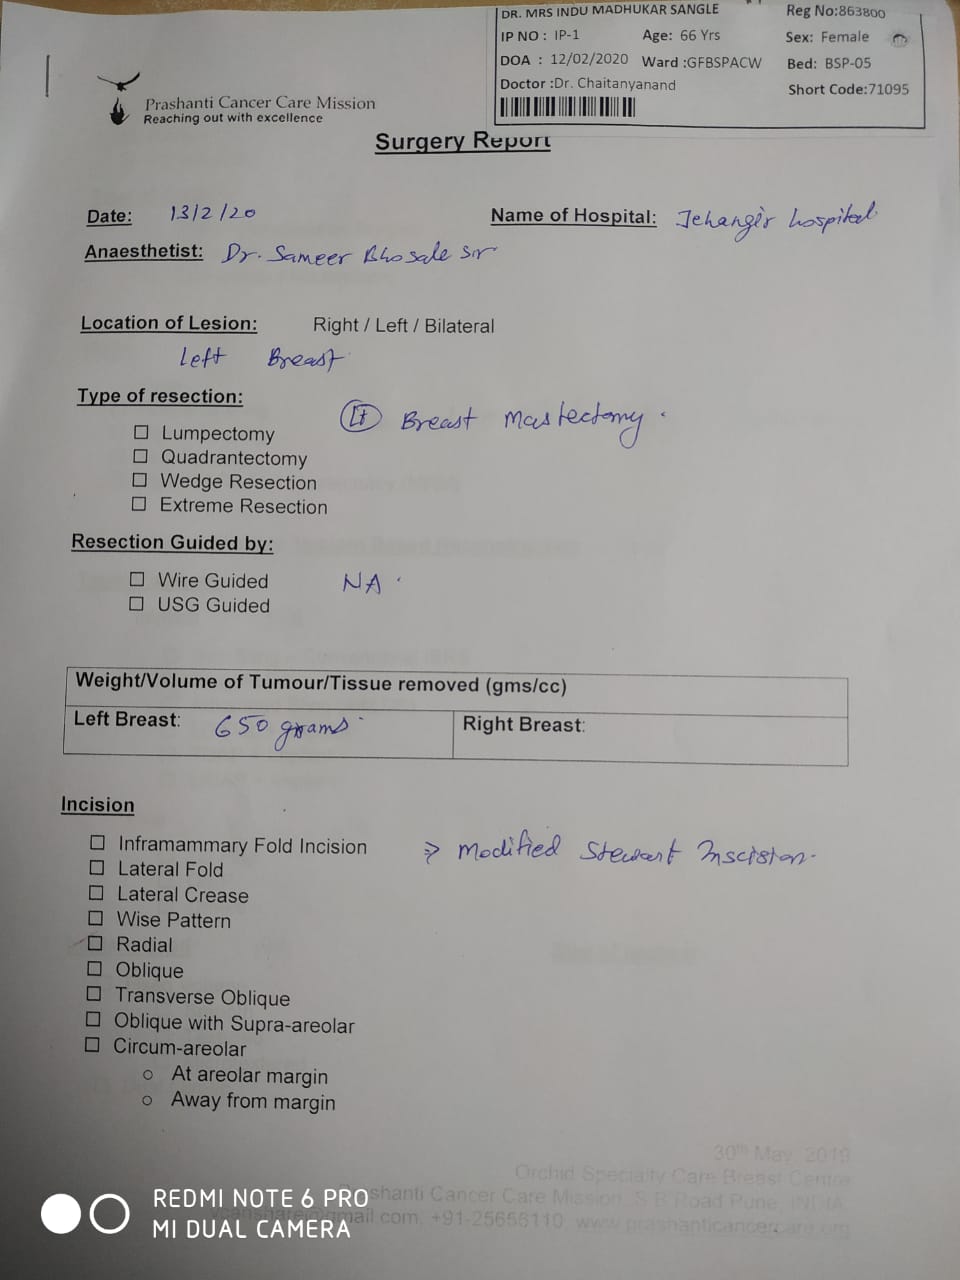 DR. MRS INDU MADHUKAR SANGLE Reg No:863800
IP NO : IP-1 Age: 66 Yrs Sex: Female
DOA : 12/02/2020 Ward :GFBSPACW Bed: BSP-05
Doctor :Dr. Chaitanyanand Short Code:71095
Prashanti Cancer Care Mission
Reaching out with excellence
Surgery Report
Date: 13/2/20 Name of Hospital: Jehangir hospital
Anaesthetist: Dr. Sameer Bhosale Sir
Location of Lesion: Right / Left / Bilateral
Left Breast
Type of resection:
Lt Breast Mastectomy.
☐ Lumpectomy
☐ Quadrantectomy
☐ Wedge Resection
☐ Extreme Resection
Resection Guided by:
☐ Wire Guided NA
☐ USG Guided
Weight/Volume of Tumour/Tissue removed (gms/cc)
Left Breast: 650 grams Right Breast:
Incision
☐ Inframammary Fold Incision ⇒ Modified Stewart Inscision.
☐ Lateral Fold
☐ Lateral Crease
☐ Wise Pattern
☐ Radial
☐ Oblique
☐ Transverse Oblique
☐ Oblique with Supra-areolar
☐ Circum-areolar
o At areolar margin
o Away from margin
30th May, 2019
Orchid Specialty Care Breast Centre
Prashanti Cancer Care Mission, S B Road Pune, INDIA
@gmail.com, +91-25656110 www.prashanticancercare.org
REDMI NOTE 6 PRO
MI DUAL CAMERA